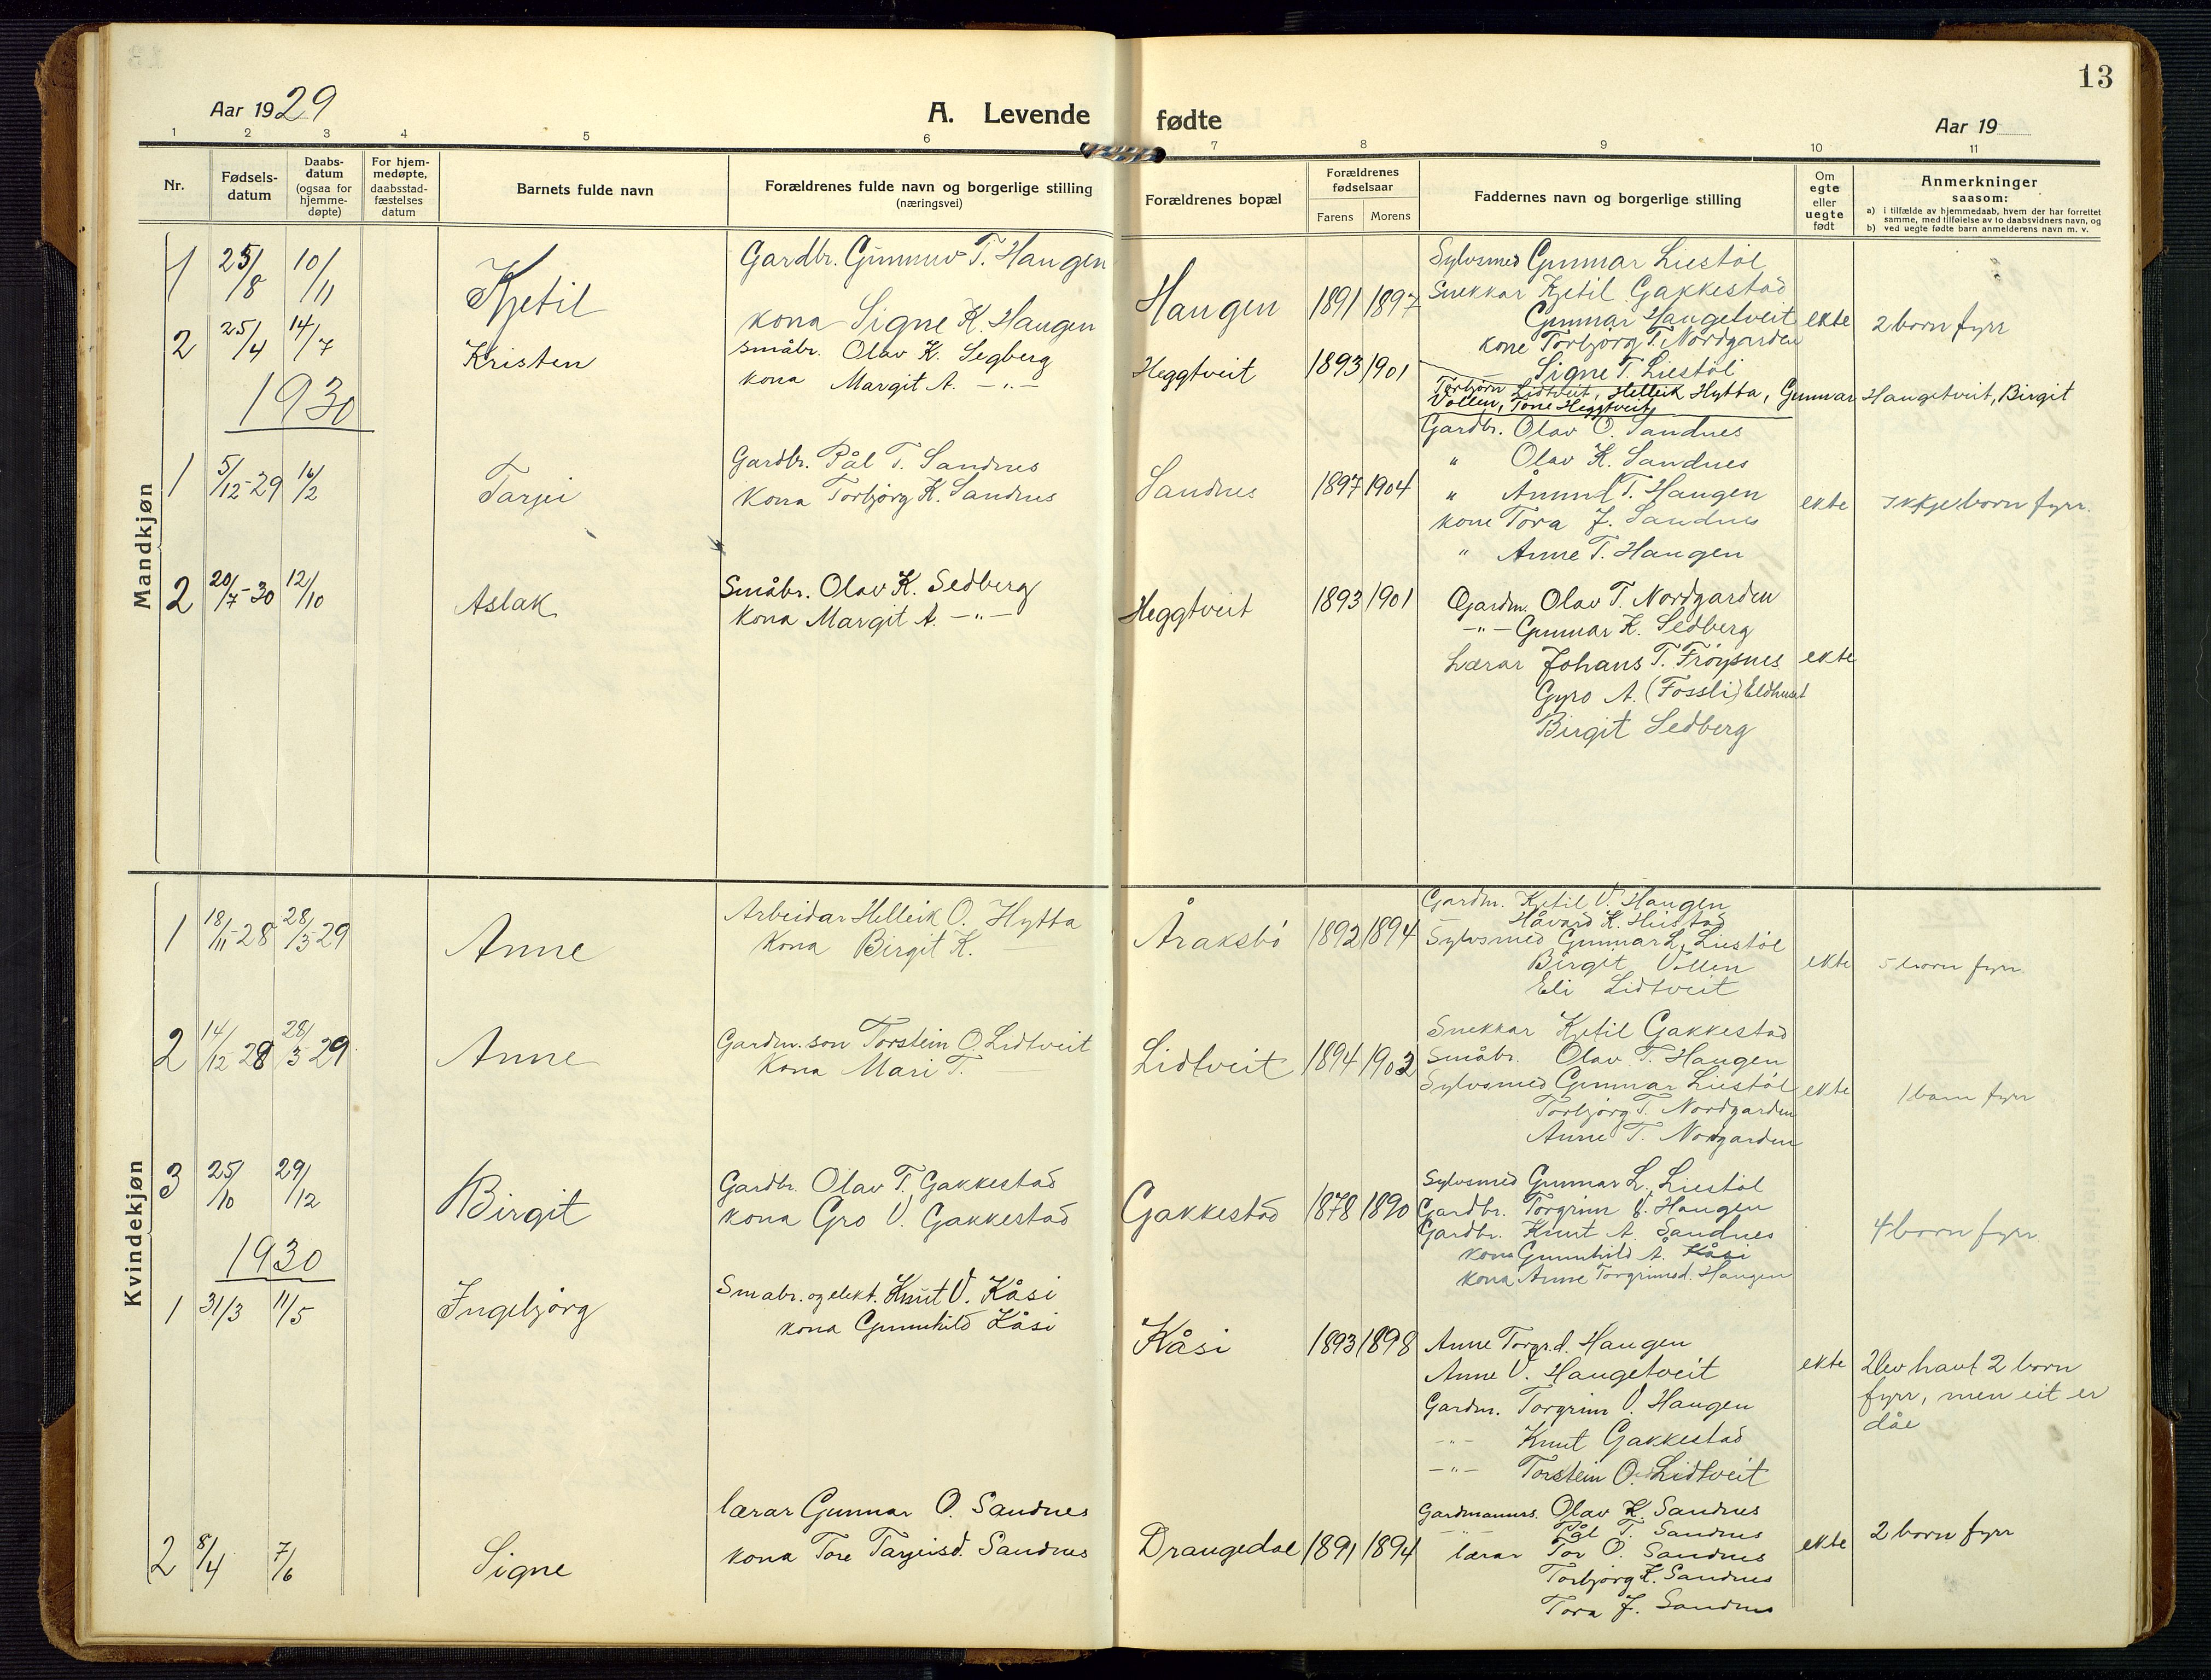 13
Aar 1929
A. Levende fødte
Aar 19
1 2 3 4 5 6 7 8 9 10 11
Nr.
Fødsels-
datum
Daabs-
datum
(ogsaa for
hjemme-
døpte)
For hjem-
medøpte,
daabsstad-
fæstelses
datum
Barnets fulde navn
Forældrenes fulde navn og borgerlige stilling
(næringsvei)
Forældrenes bopæl
Forældrenes
fødselsaar
Farens
Morens
Faddernes navn og borgerlige stilling
Om
egte
eller
uegte
født
Anmerkninger
saasom:
a) i tilfælde av hjemmedaab, hvem der har forrettet
samme, med tilføielse av to daabsvidners navn, og
b) ved uegte fødte barn anmelderens navn m. v.
Mandkjøn
1 25/8 10/11 Kjetil
Gardbr. Gunnuv T. Haugen
kona Signe K. Haugen
Haugen 1891 1897
Sylvsmed Gunnar Liestøl
Snekkar Kjetil Gakkestad
Gunnar Haugetveit
kone Torbjørg T. Nordgarden
Signe T. Liestøl
ekte 2 born fyrr
2 25/4 14/7 Kristen
småbr. Olav K. Segberg
kona Margit A. -"-
Heggtveit 1893 1901
Torbjørn Lidtveit, Helleik Hytta, Gunnar Haugetveit, Birgit
Vollen, Tone Heggtveit
1930
1 5/12-29 16/2 Tarjei
Gardbr. Pål T. Sandnes
Kona Torbjørg K. Sandnes
Sandnes 1897 1904
Gardbr. Olav O. Sandnes
" Olav K. Sandnes
" Ånund T. Haugen
kone Tora J. Sandnes
" Anne T. Haugen
ekte Ikkje born fyrr.
2 20/7-30 12/10 Aslak
Småbr. Olav K. Sedberg
kona Margit A. -"-
Heggtveit 1893 1901
Gardm. Olav T. Nordgarden
-"- Gunnar K. Sedberg
Lærar Johans T. Frøysnes
Gyro A. (Fossli) Eldhuset
Birgit Sedberg
ekte
Kvindekjøn
1 18/11-28 28/3-29 Anne
Arbeidar Helleik O. Hytta
Kona Birgit K.
Åraksbø 1892 1894
Gardm. Kjetil V. Haugen
Håvard K. Heistad
Sylvsmed Gunnar L. Liestøl
Birgit Vollen
Eli Lidtveit
ekte 5 born fyrr.
2 14/12-28 28/3-29 Anne
Gardm.son Torstein O. Lidtveit
Kona Mari T.
Lidtveit 1894 1902
Snekkar Kjetil Gakkestad
Småbr. Olav T. Haugen
Sylvsmed Gunnar Liestøl
Torbjørg T. Nordgarden
Anne T. Norgarden
ekte 1 barn fyrr
3 25/10 29/12 Birgit
Gardbr. Olav T. Gakkestad
kona Gro V. Gakkestad
Gakkestad 1878 1890
Sylvsmed Gunnar L. Liestøl
Gardbr. Torgrim V. Haugen
Gardbr. Knut A. Sandnes
kona Gunnhild A. Kåsi
kona Anne Torgrimsd. Haugen
4 born fyrr
1930
1 31/3 11/5 Ingebjørg
Småbr. og elekt. Knut V. Kåsi
kona Gunnhild Kåsi
Kåsi 1893 1898
Anne Torgrd. Haugen
Anne V. Haugetveit
Gardm. Torgrim V. Haugen
-"- Knut Gakkestad
-"- Torstein O. Lidtveit
ekte
havt 2 born
fyrr, men eit er
dåe
2 8/4 7/6 Signe
lærar Gunnar O. Sandnes
kona Tore Tarjeisd. Sandnes
Drangedal 1891 1894
Gardmanns. Olav K. Sandnes
-"- Pål T. Sandnes
lærar Tor O. Sandnes
Torbjørg K. Sandnes
Tora J. Sandnes
ekte 2 born fyrr